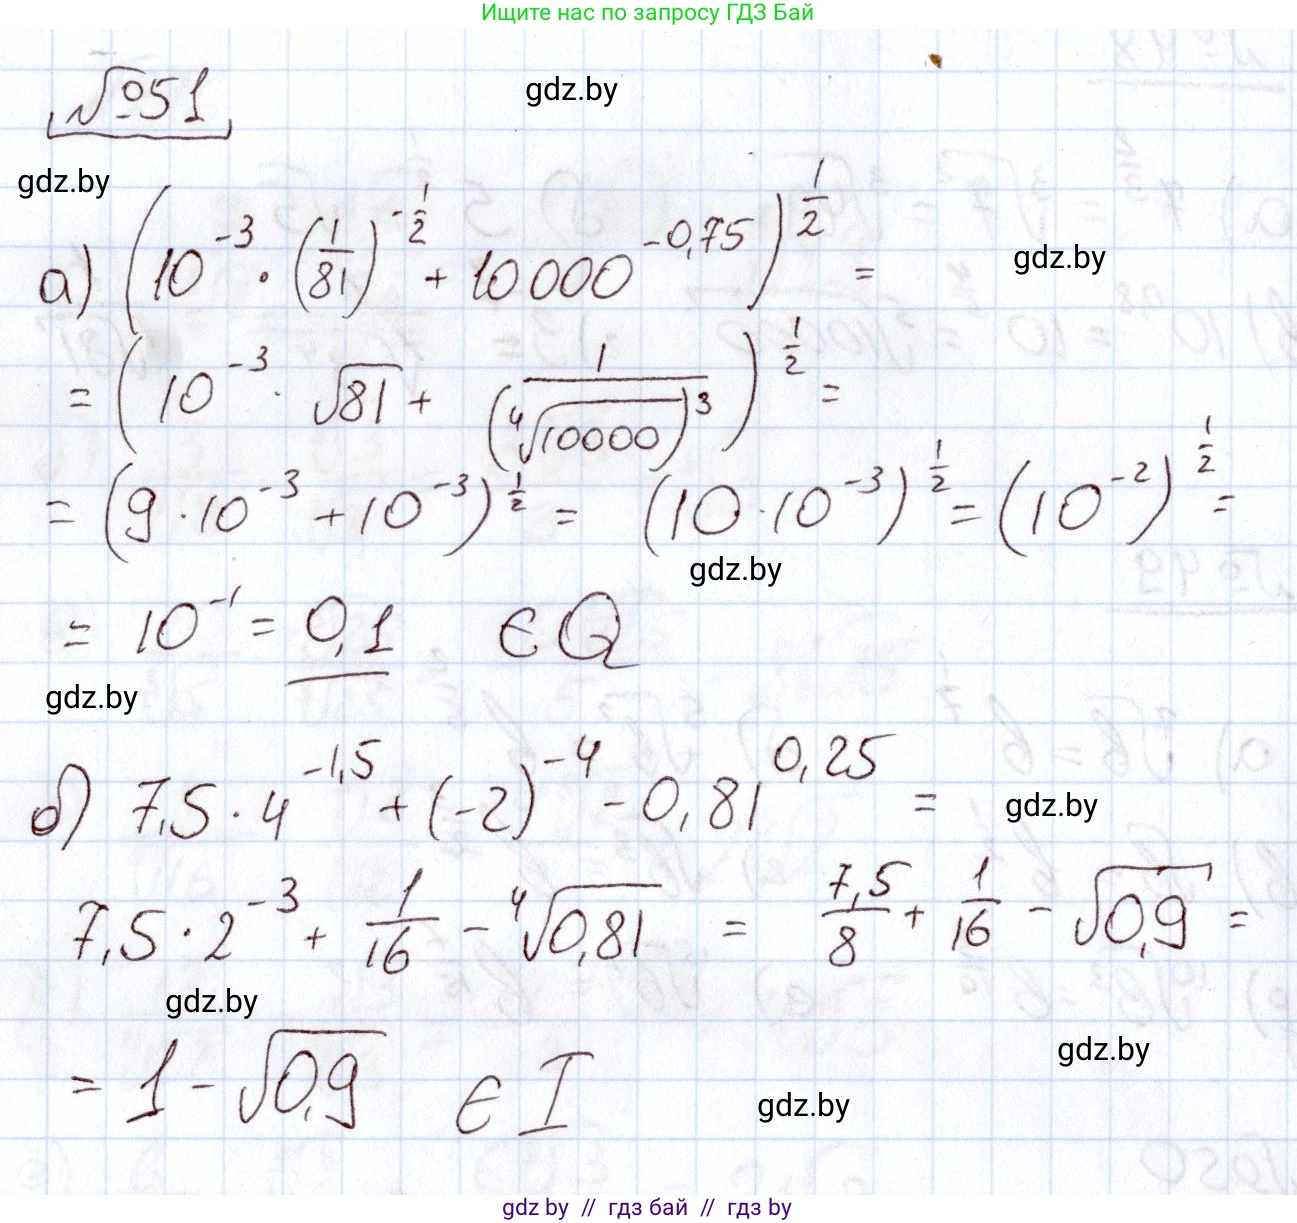 Ищите нас по запросу ГДЗ Бай
№51
gdz.by
gdz.by
а) (10^{-3} · (1/81)^{-1/2} + 10000^{-0,75})^{1/2} =
gdz.by
= (10^{-3} · √81 + 1/(⁴√10000)^3)^{1/2} =
= (9 · 10^{-3} + 10^{-3})^{1/2} = (10 · 10^{-3})^{1/2} = (10^{-2})^{1/2} =
gdz.by
= 10^{-1} = 0,1 ∈ Q
gdz.by
б) 7,5 · 4^{-1,5} + (-2)^{-4} - 0,81^{0,25} =
gdz.by
7,5 · 2^{-3} + 1/16 - ⁴√0,81 = 7,5/8 + 1/16 - √0,9 =
gdz.by
gdz.by
= 1 - √0,9 ∈ I
gdz.by
gdz by // гдз бай // гдз by